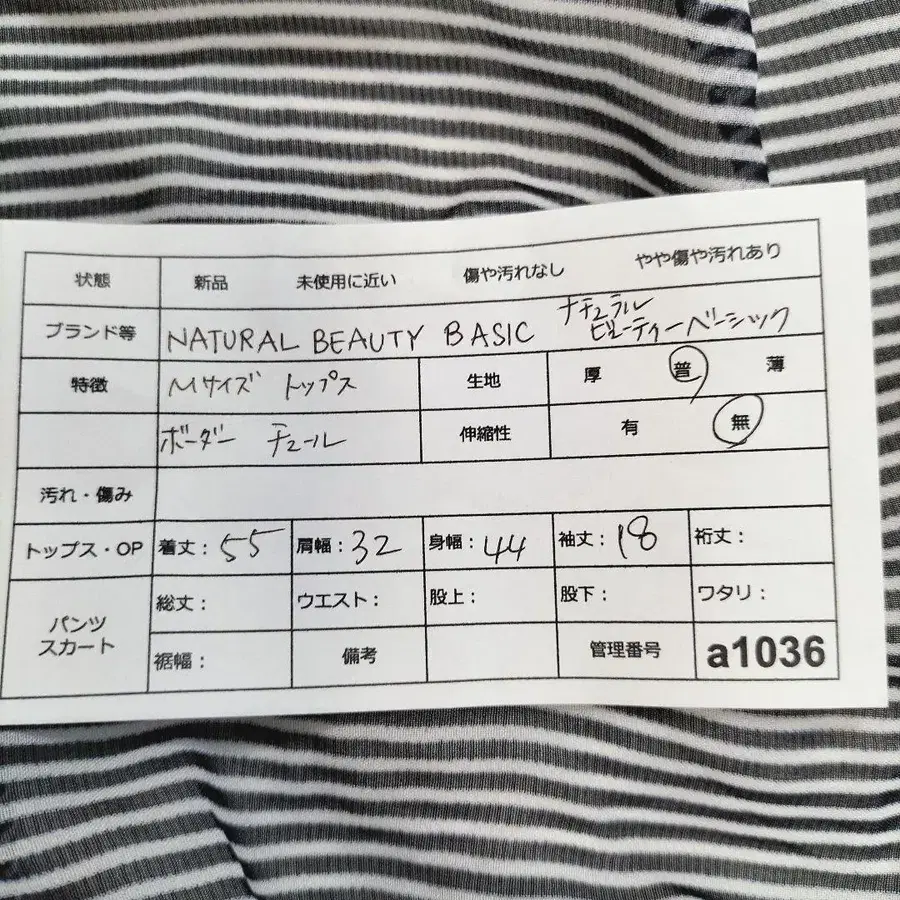 状態 新品 未使用に近い 傷や汚れなし やや傷や汚れあり
ブランド等 NATURAL BEAUTY BASIC ナチュラル ビューティーベーシック
特徴 Mサイズ トップス 生地 厚 普 薄
ボーダー チュール 伸縮性 有 無
汚れ・傷み
トップス・OP 着丈：55 肩幅：32 身幅：44 袖丈：18 裄丈：
パンツ スカート 総丈： ウエスト： 股上： 股下： ワタリ：
裾幅： 備考 管理番号 a1036